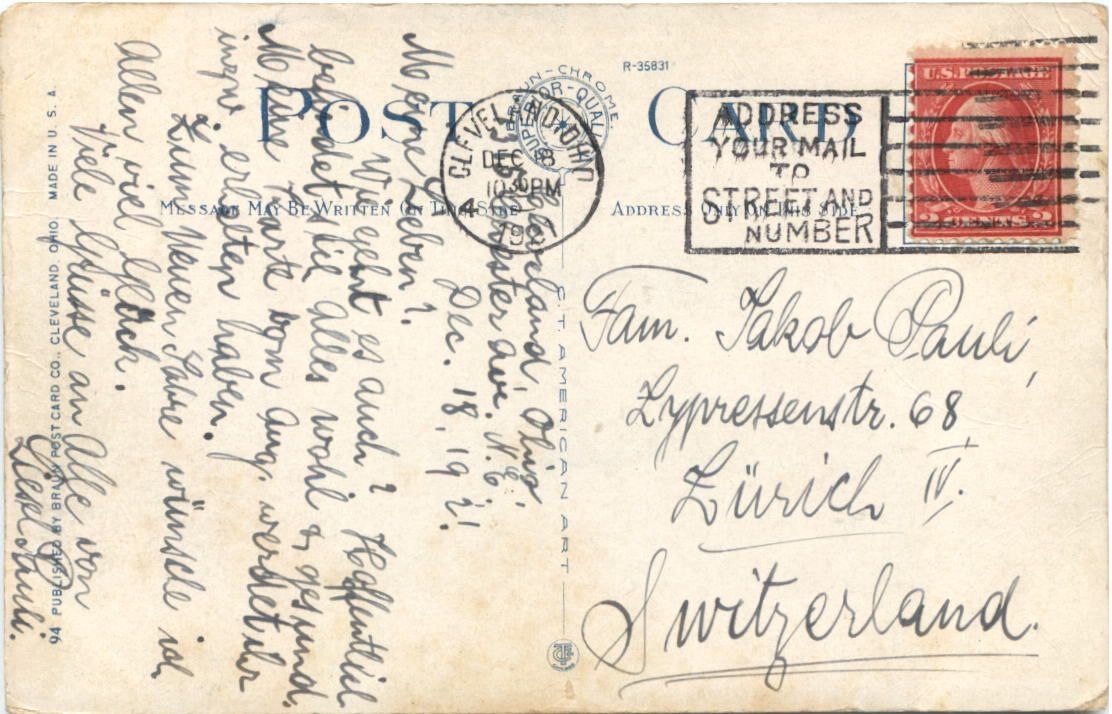 POST CARD
R-35831
BRAUN-CHROME
SUPERIOR-QUALITY
MESSAGE MAY BE WRITTEN ON THIS SIDE
ADDRESS ONLY ON THIS SIDE
CLEVELAND, OHIO
DEC 18
10 30 PM
192
ADDRESS
YOUR MAIL
TO
STREET AND
NUMBER
U.S. POSTAGE
2 CENTS 2
Cleveland, Ohio.
ave. N.E.
Dec. 18, 1921.
Meine Lieben?
Wie geht es auch? Hoffentlich
befindet sich alles wohl & gesund.
Meine Karte vom Aug. werdet ihr
inzw. erhalten haben.
Zum Neuen Jahre wünsche ich
Allen viel Glück.
Viele Grüsse an Alle von
Liesel Pauli.
Fam. Jakob Pauli,
Zypressenstr. 68
Zürich IV.
Switzerland.
C.T. AMERICAN ART
94 PUBLISHED BY BRAUN POST CARD CO., CLEVELAND, OHIO. MADE IN U. S. A.